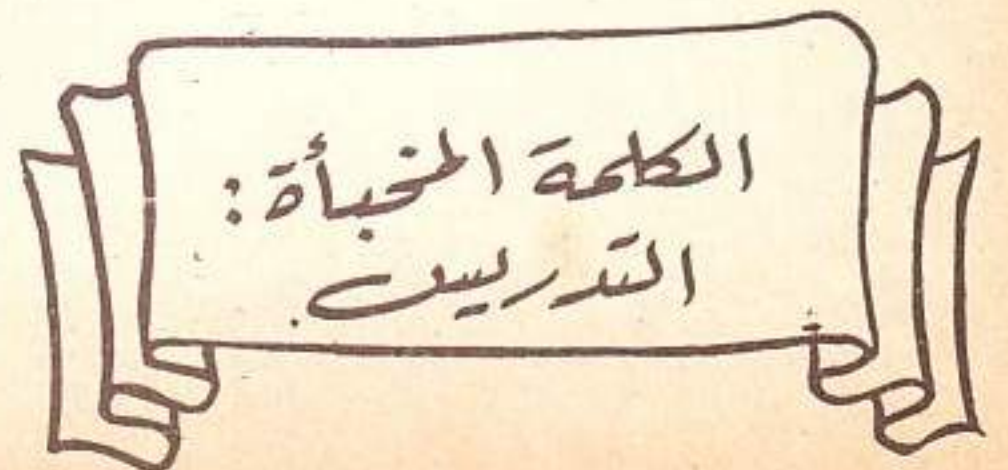 الكلمة المخبأة:
التدريس.